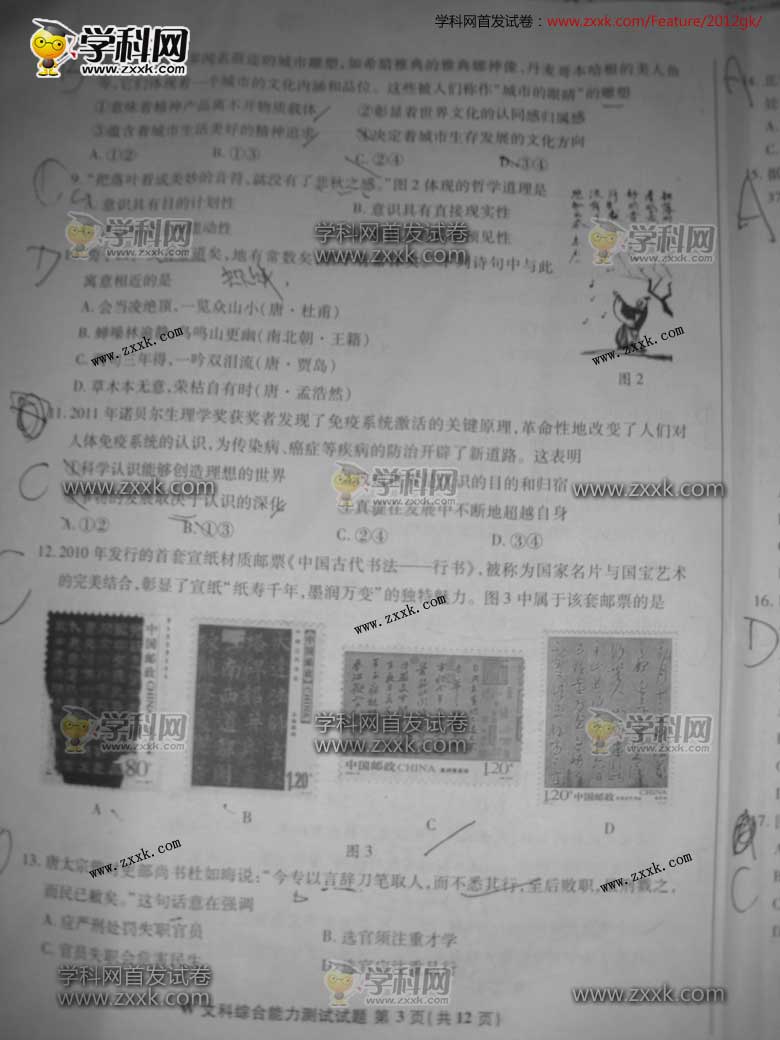 学科网首发试卷：www.zxxk.com/Feature/2012gk/
学科网
zxxk.com
闻名遐迩的城市雕塑，如希腊雅典的雅典娜神像、丹麦哥本哈根的美人鱼
等，它们体现着一个城市的文化内涵和品位。这些被人们称作“城市的眼睛”的雕塑
①意味着精神产品离不开物质载体 ②彰显着世界文化的认同感归属感
③蕴含着城市生活美好的精神追求 ④决定着城市生存发展的文化方向
A. ①② B. ①③ C. ②④ D. ③④
9. “把落叶看成美妙的音符，就没有了悲秋之感。”图 2 体现的哲学道理是
A. 意识具有目的计划性 B. 意识具有直接现实性
能动性 预见性
学科网
zxxk.com
学科网首发试卷
www.zxxk.com
学科网
zxxk.com
道矣，地有常数矣 诗句中与此
寓意相近的是
A. 会当凌绝顶，一览众山小(唐·杜甫)
B. 蝉噪林逾静，鸟鸣山更幽(南北朝·王籍)
C. 两句三年得，一吟双泪流(唐·贾岛)
D. 草木本无意，荣枯自有时(唐·孟浩然)
www.zxxk.com
www.zxxk.com
图 2
11. 2011 年诺贝尔生理学奖获奖者发现了免疫系统激活的关键原理，革命性地改变了人们对
人体免疫系统的认识，为传染病、癌症等疾病的防治开辟了新道路。这表明
①科学认识能够创造理想的世界 识的目的和归宿
发展取决于认识的深化 ④真理在发展中不断地超越自身
学科网首发试卷
www.zxxk.com
学科网
zxxk.com
学科网首发试卷
www.zxxk.com
A. ①② B. ①③ C. ②④ D. ③④
12. 2010 年发行的首套宣纸材质邮票《中国古代书法——行书》，被称为国家名片与国宝艺术
的完美结合，彰显了宣纸“纸寿千年，墨润万变”的独特魅力。图 3 中属于该套邮票的是
www.zxxk.com
中国邮政 CHINA
80
1.20
中国邮政 CHINA 1.20
1.20 中国邮政 CHINA
学科网
zxxk.com
学科网首发试卷
www.zxxk.com
学科网
zxxk.com
A B C D
图 3
13. 唐太宗 吏部尚书杜如晦说：“今专以言辞刀笔取人，而不悉其行，至后败职，虽刑戮之，
而民已敝矣。”这句话意在强调
www.zxxk.com
www.zxxk.com
A. 应严刑处罚失职官员 B. 选官须注重才学
C. 官员失职会危害民生 D. 选官应注重品行
学科网首发试卷
www.zxxk.com
学科网
zxxk.com
学科网首发试卷
www.zxxk.com
文科综合能力测试试题 第 3 页(共 12 页)
15.
16.
17.